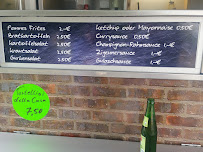 Pommes Frites 2,-€
Bratkartoffeln 2,50€
Kartoffelsalat 2,50€
Krautsalat 2,50€
Gurkensalat 2,50€
Ketchup oder Mayonnaise 0,50€
Currysauce 0,50€
Champignon-Rahmsauce 1,-€
Zigeunersauce 1,-€
Gulaschsauce 1,-€
Tortellini
della Casa
7,50